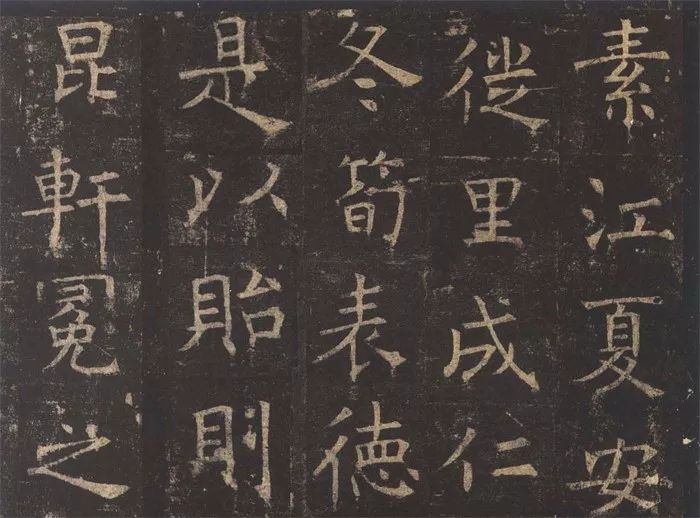 素江夏安
徙里成仁
冬筍表德
是以貽則
昆軒冕之